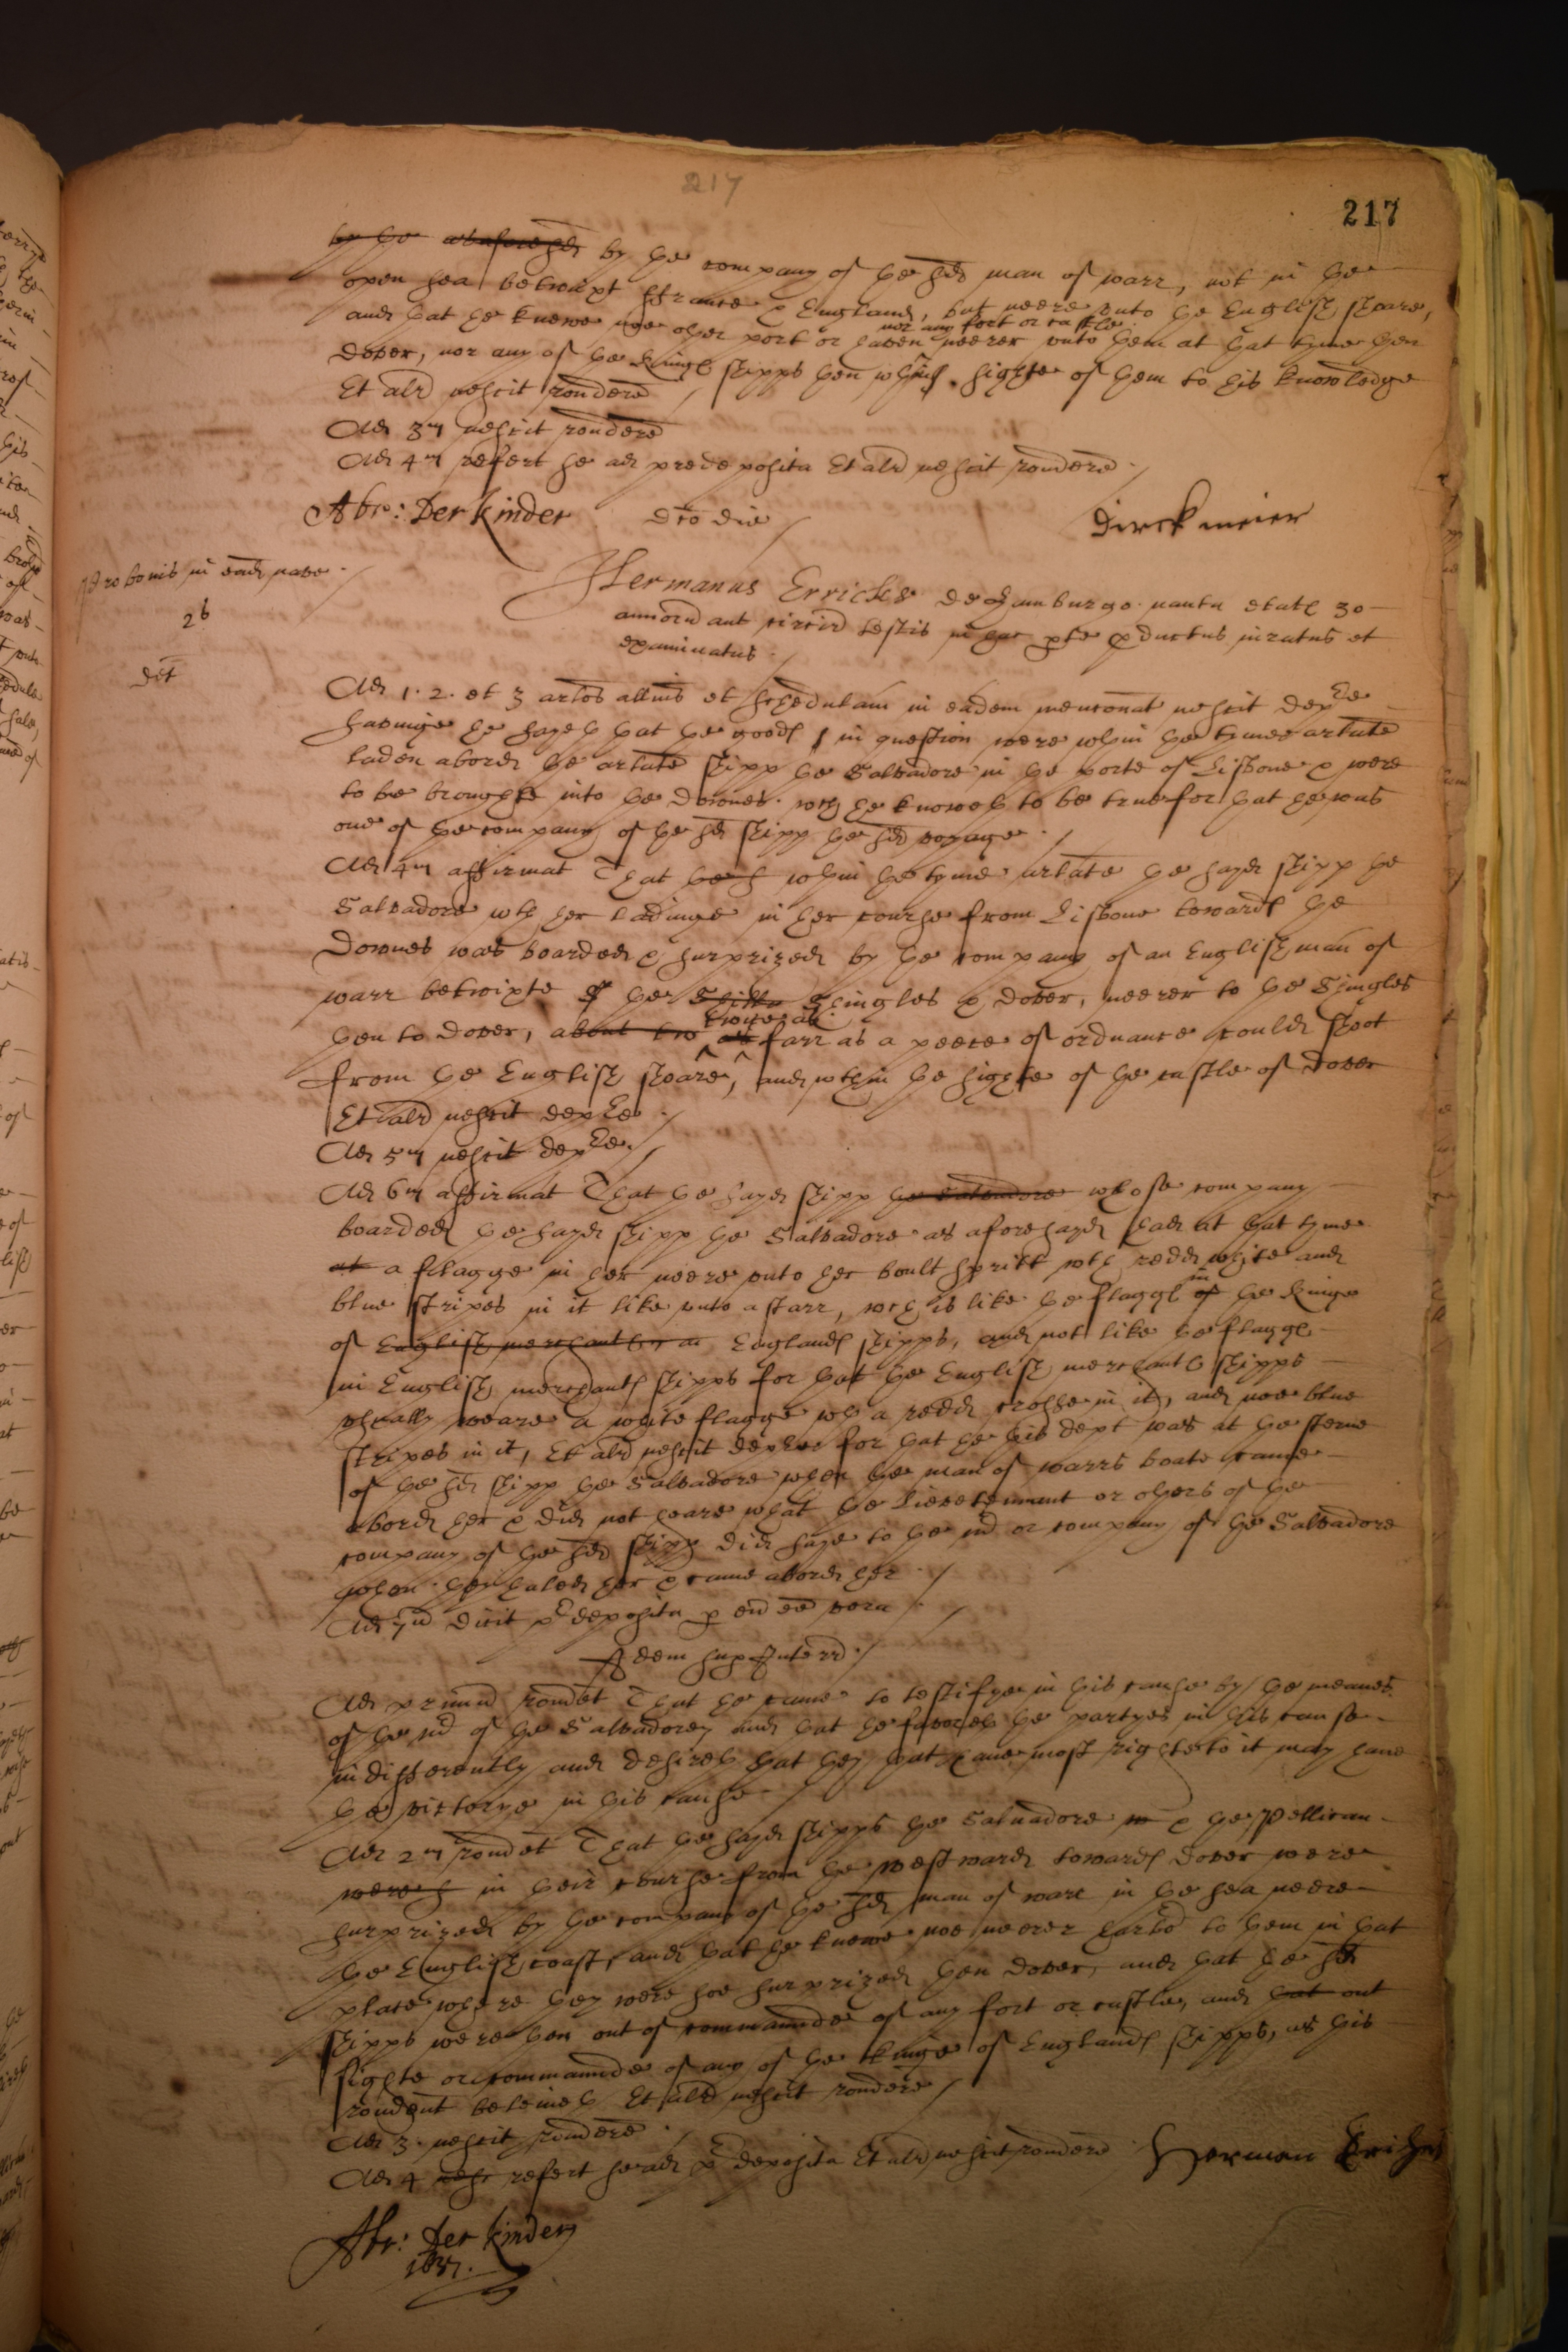 217
217
by the company of the sd man of warr, not in the
open sea betwixt ffrance & England, but neere vnto the English shoare,
nor any fort or castle
and that he knewe noe other port or haven neerer vnto them at that tyme then
Dover, nor any of the Kings shipps then wthin sighte of them to his knowledge
Et alr nescit rondere
Ad 3m nescit rondere
Ad 4m refert se ad predeposita Et alr nescit rondere
Abr: Derkinder dto die
Dirck meier
Pro bonis in ead nave
26
Hermanus Errickes de Hamburgo nauta etatis 30
annorum aut circiter testis in hac pte productus iuratus et
examinatus
Ad 1. 2. et 3 arlos allnis et schedulam in eadem menconat nescit depre
savinge he sayeth that the goods in question were wthin the tyme arlate
laden abord the arlate shipp the Salvadore in the porte of Lisbone & were
to be broughte into the Downes. wch he knoweth to be true for that he was
one of the company of the sd shipp the sd voyage
Ad 4m affirmat That wthin the tyme arlate the sayd shipp the
Salvadore wth her ladinge in her course from Lisbone towards the
Downes was boarded & surprized by the company of an English man of
warr betwixte the Shingles & Dover, neerer to the Shingles
twice as
then to Dover, about two as farr as a peece of ordnance could shoot
from the English shoare, and wthin the sighte of the castle of Dover
Et alr nescit depre
Ad 5m nescit depre
Ad 6m affirmat That the sayd shipp the Salvadore whose company
boarded the sayd shipp the Salvadore as aforesayd had at that tyme
at a fflagge in her neere vnto her boultspritt wth redd white and
blue stripes in it like vnto a starr, wch is like the flaggs in of the Kinge
of English merchants Englands shipps, and not like the flaggs
in English merchants shipps for that the English merchants shipps
vsually weare a white flagge wth a redd crosse in it, and noe blue
stripes in it, Et alr nescit depre for that he this dept was at the sterne
of the sd shipp the Salvadore when the man of warrs boate came
abord her & did not heare what the Lievetennant or others of the
company of the sd shipp did saye to the mr or company of the Salvadore
when they haled her & came abord her
Ad 7m dicit predeposita p eum esse vera
Idem sup Interr
Ad primum rondet That he came to testifye in this cause by the meanes
of the mr of the Salvadore, and that he favoreth the partyes in this cause
indifferently and desireth that they that have most righte to it may have
the victorye in this cause
Ad 2m rondet That the sayd shipps the Salvadore & the Pellican
in their course from the westward towards Dover were
surprized by the company of the sd man of warr in the sea neere
the English coast, and that he knewe noe neerer harbor to them in that
place where they were soe surprized then Dover, and that the sd
shipps were then out of commannde of any fort or castle, and that out
sighte or commannde of any of the kinge of Englands shipps, as this
rondent beleiveth Et alr nescit rondere
Ad 3. nescit rondere
Ad 4 refert se ad predeposita Et alr nescit rondere
Herman Eriches
Abr: Derkinder